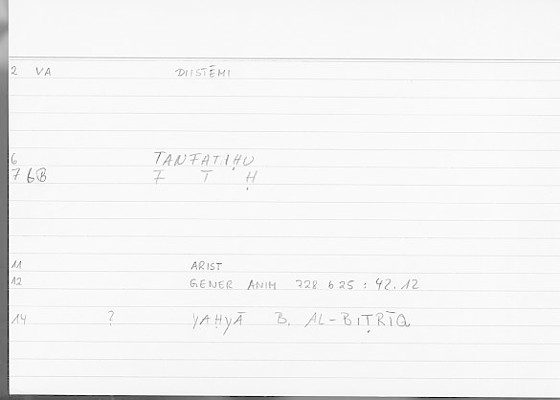 2 VA DIISTĒMI
6 TANFATIḤU
7 6B F T Ḥ
11 ARIST
12 GENER ANIM 728 b 25 : 42.12
14 ? YAḤYĀ B. AL-BIṬRĪQ